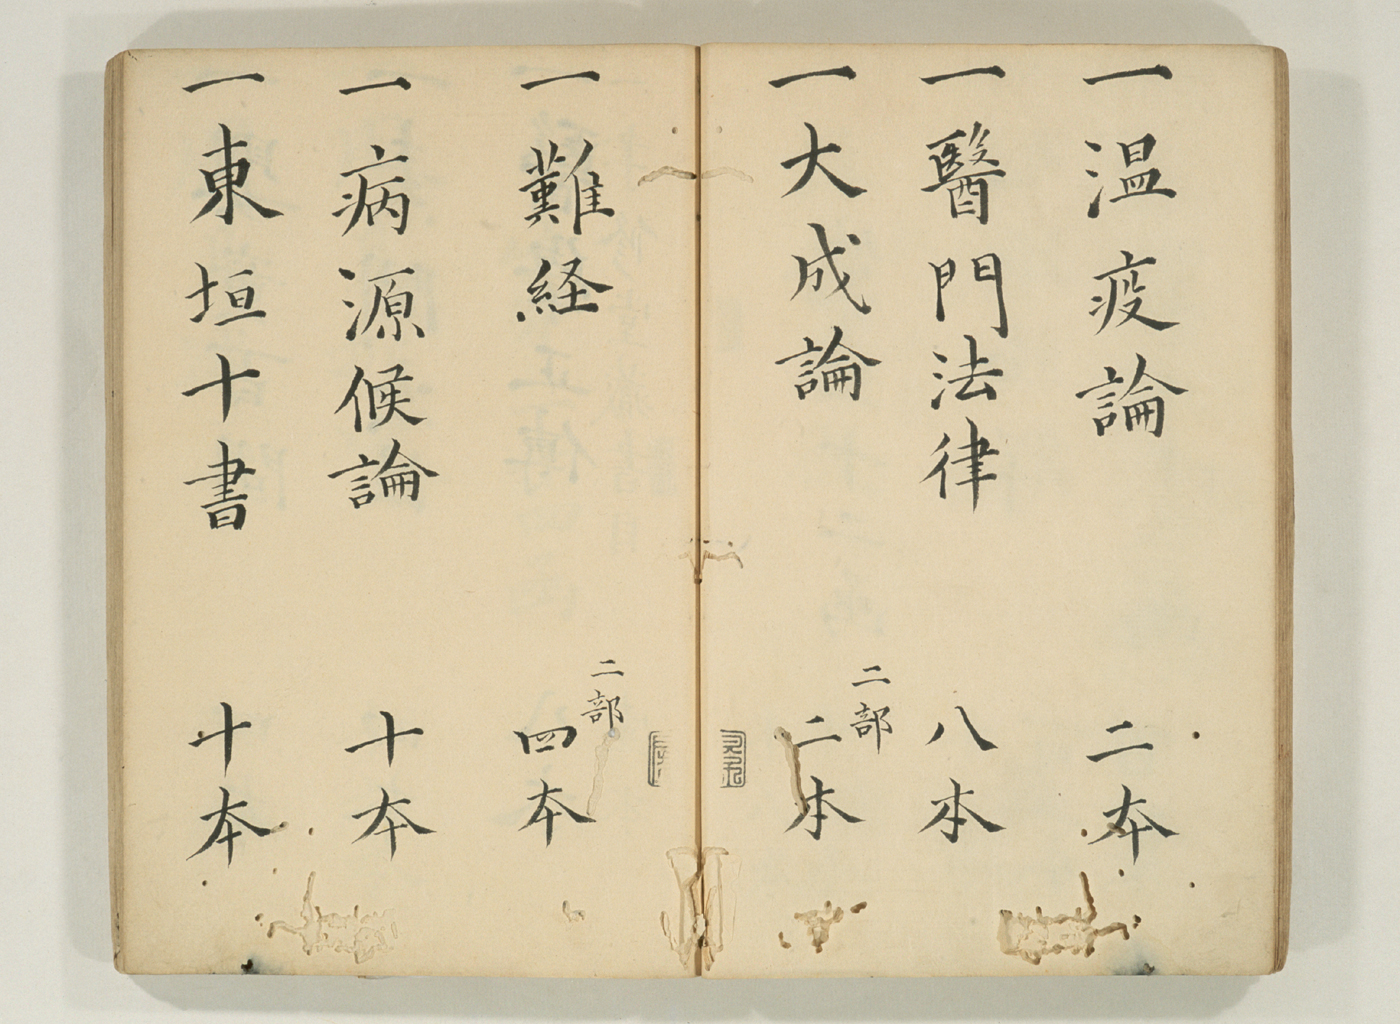 一温疫論 二本
一醫門法律 八本
一大成論 二部 二本
一難経 二部 四本
一病源候論 十本
一東垣十書 十本